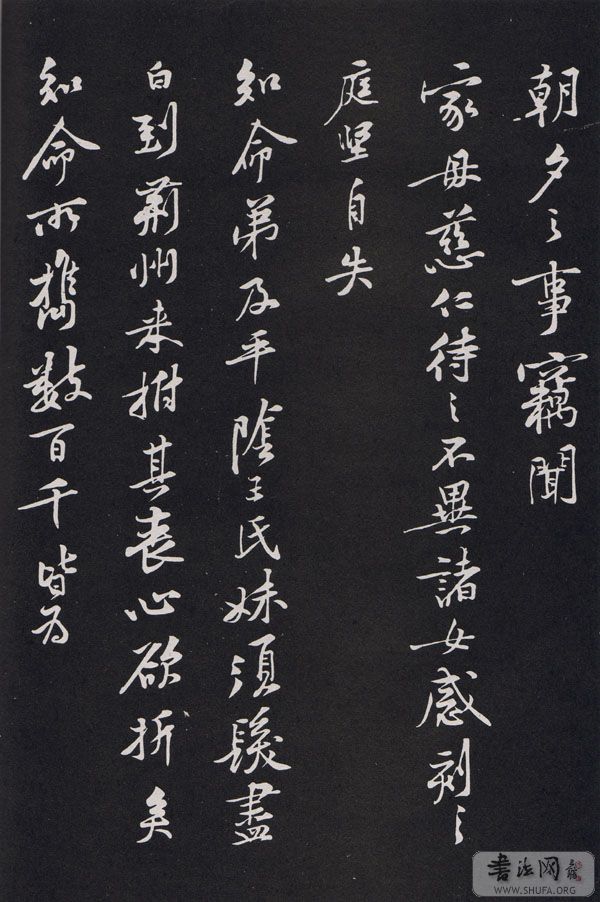 朝夕之事竊聞
家母慈仁待之不異諸女感刻之
庭堅自失
知命弟及平陰王氏妹須髮盡
白到荊州来拊其喪心欲折矣
知命所攜數百千皆為
書法网
WWW.SHUFA.ORG